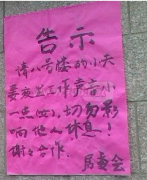 告示
请八号楼的小天
夜班工作声音小
一点(女),切勿影
响他人休息!
谢谢合作.
居委会